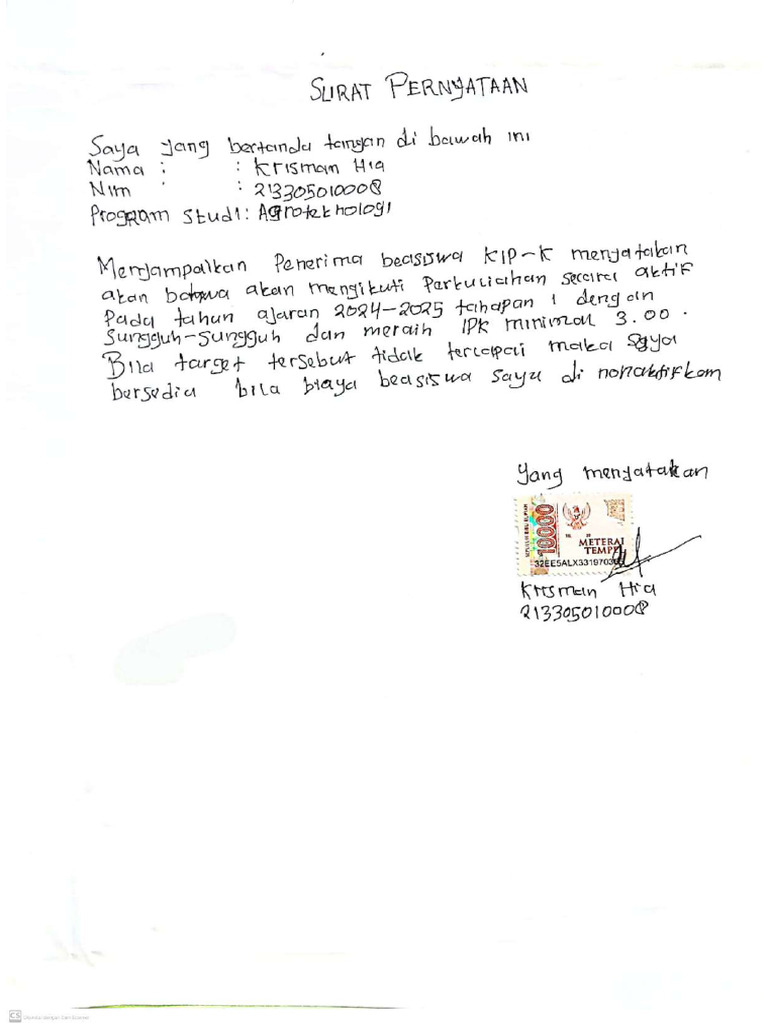 SURAT PERNYATAAN
Saya yang bertanda tangan di bawah ini
Nama : : Krisman Hia
Nim : : 213305010008
Program Studi : Agroteknologi
Menyampaikan Penerima beasiswa KIP-K menyatakan
akan bahwa akan mengikuti Perkuliahan secara aktif
Pada tahun ajaran 2024-2025 tahapan 1 dengan
Sungguh-Sungguh dan meraih IPK minimal 3.00.
Bila target tersebut tidak tercapai maka saya
bersedia bila biaya beasiswa saya di nonaktifkan
Yang menyatakan
SEPULUH RIBU RUPIAH
10000
METERAI
TEMPEL
32EE5ALX33197030
Krisman Hia
213305010008
CS